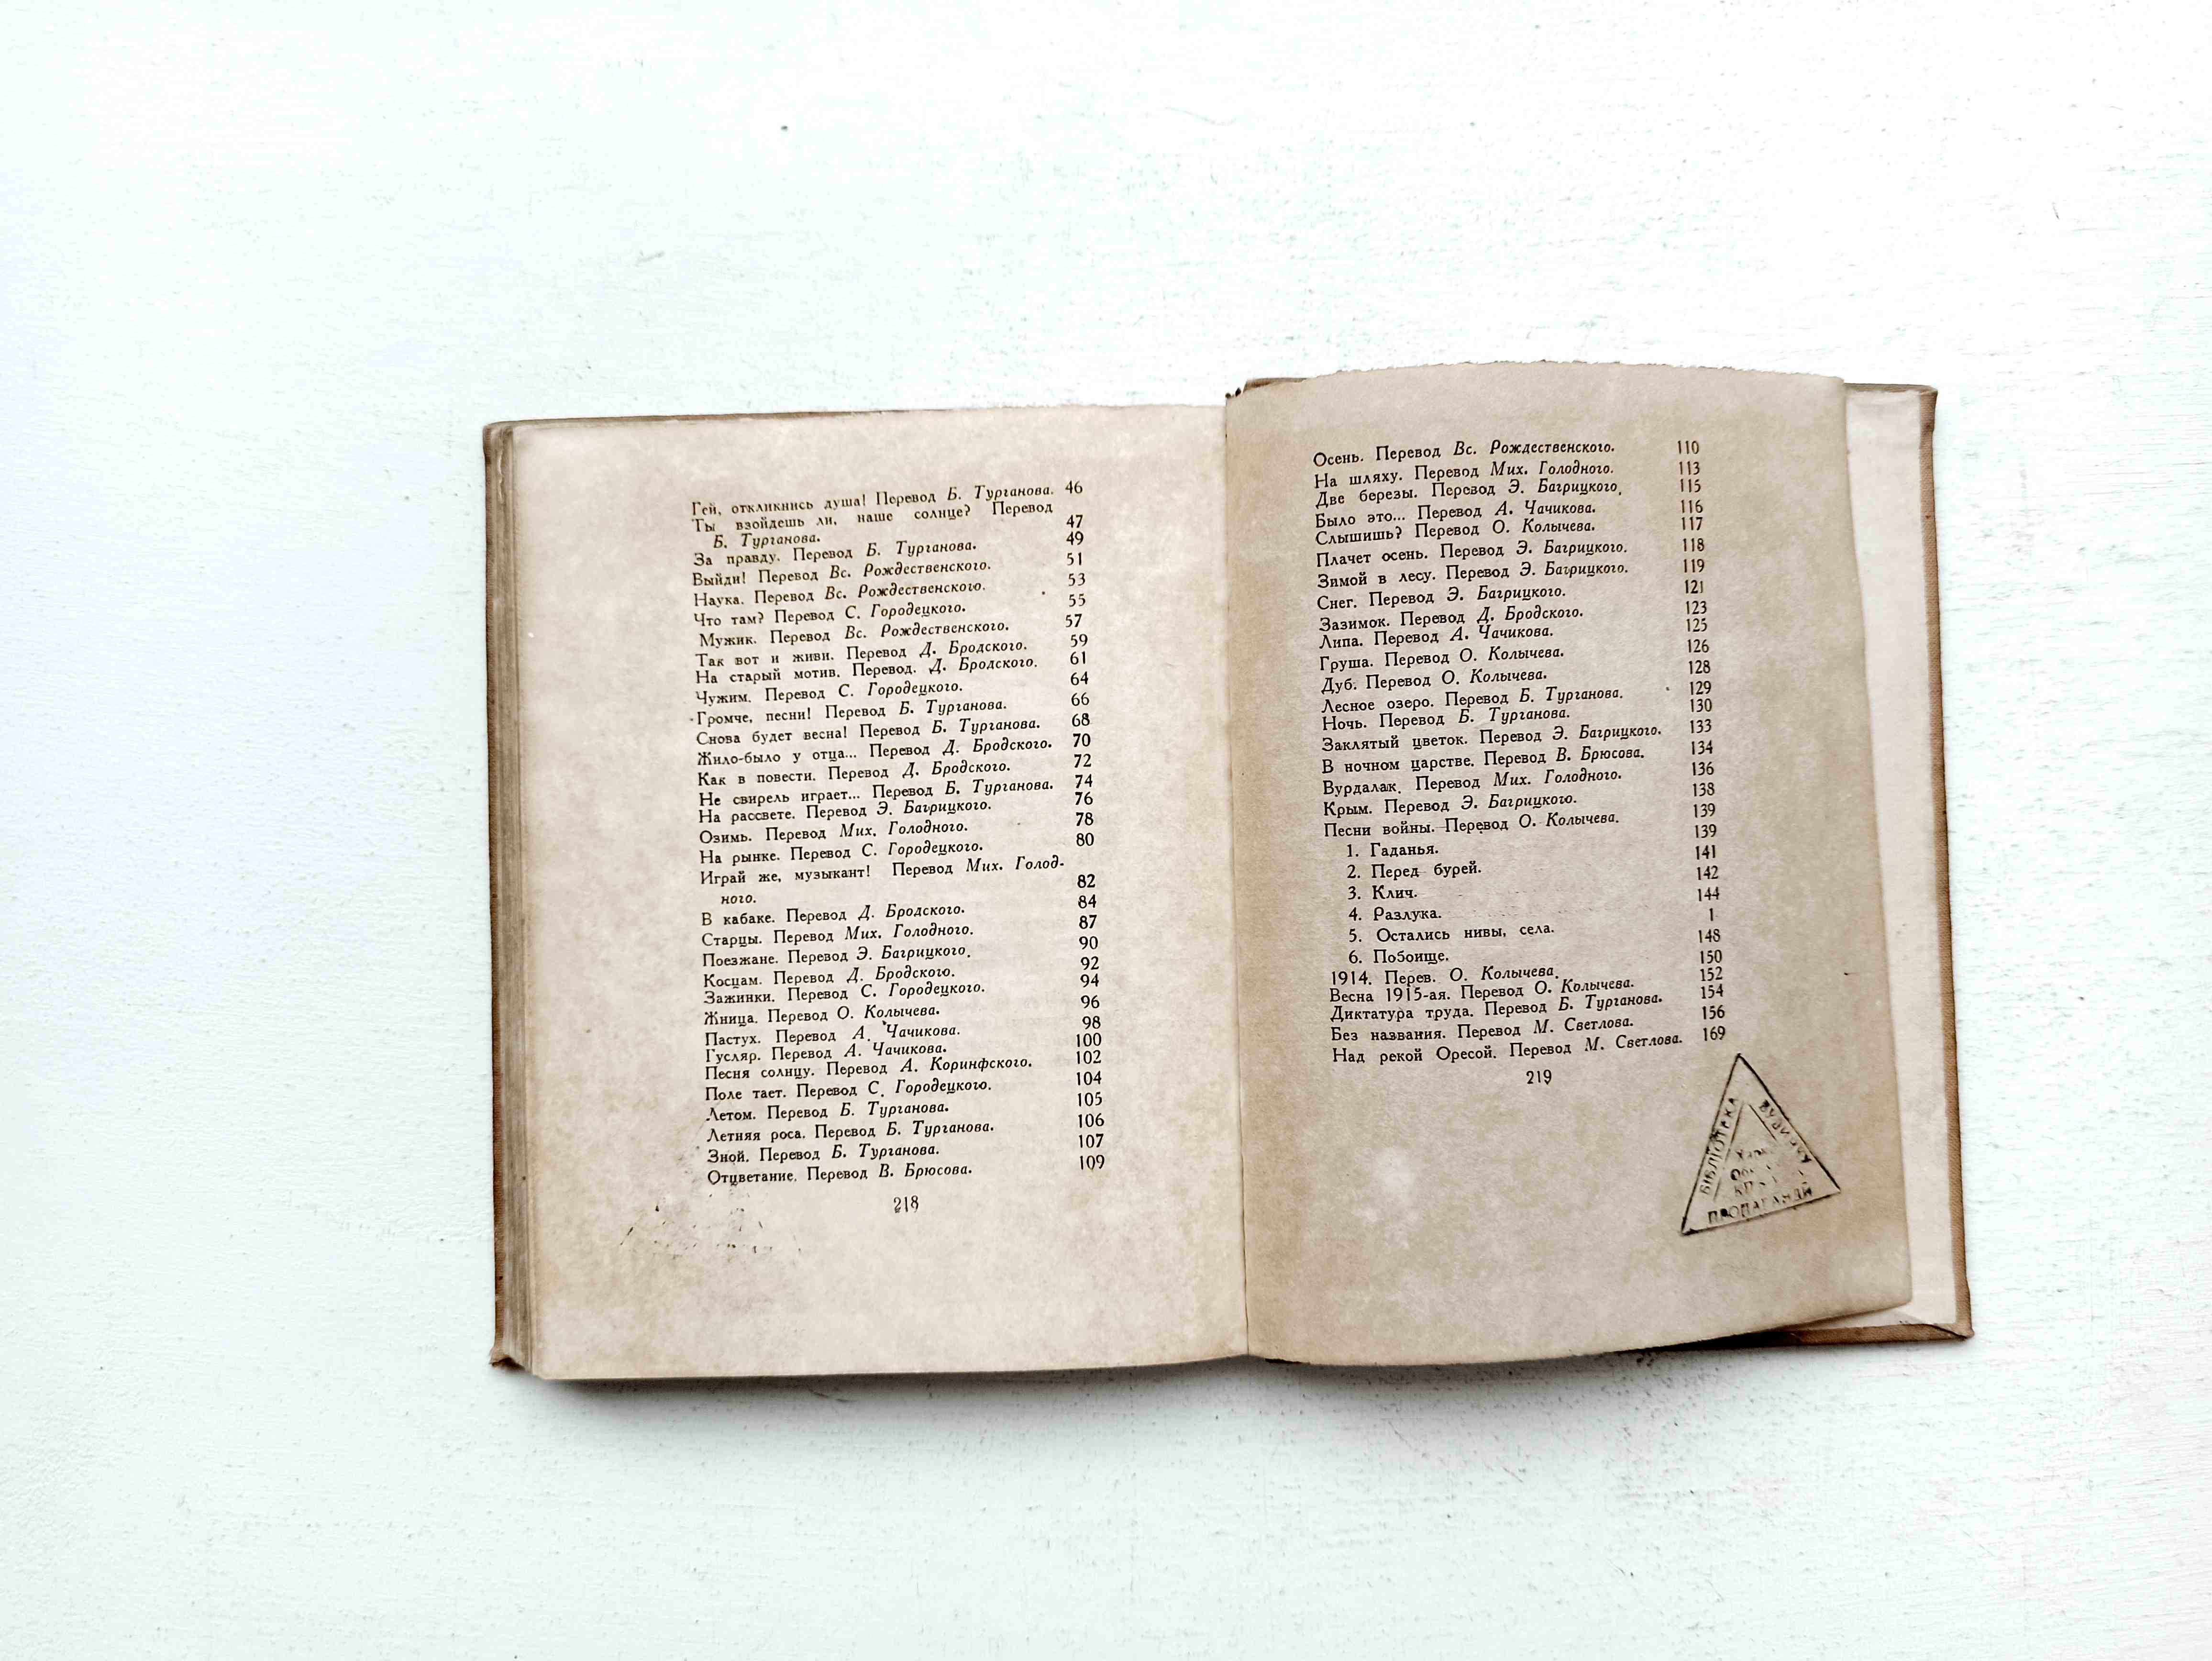 Гей, откликнись душа! Перевод Б. Турганова. 46
Ты взойдешь ли, наше солнце? Перевод
Б. Турганова. 47
За правду. Перевод Б. Турганова. 49
Выйди! Перевод Вс. Рождественского. 51
Наука. Перевод Вс. Рождественского. 53
Что там? Перевод С. Городецкого. 55
Мужик. Перевод Вс. Рождественского. 57
Так вот и живи. Перевод Д. Бродского. 59
На старый мотив. Перевод. Д. Бродского. 61
Чужим. Перевод С. Городецкого. 64
Громче, песни! Перевод Б. Турганова. 66
Снова будет весна! Перевод Б. Турганова. 68
Жило-было у отца... Перевод Д. Бродского. 70
Как в повести. Перевод Д. Бродского. 72
Не свирель играет... Перевод Б. Турганова. 74
На рассвете. Перевод Э. Багрицкого. 76
Озимь. Перевод Мих. Голодного. 78
На рынке. Перевод С. Городецкого. 80
Играй же, музыкант! Перевод Мих. Голод-
ного. 82
В кабаке. Перевод Д. Бродского. 84
Старцы. Перевод Мих. Голодного. 87
Поезжане. Перевод Э. Багрицкого. 90
Косцам. Перевод Д. Бродского. 92
Зажинки. Перевод С. Городецкого. 94
Жница. Перевод О. Колычева. 96
Пастух. Перевод А. Чачикова. 98
Гусляр. Перевод А. Чачикова. 100
Песня солнцу. Перевод А. Коринфского. 102
Поле тает. Перевод С. Городецкого. 104
Летом. Перевод Б. Турганова. 105
Летняя роса. Перевод Б. Турганова. 106
Зной. Перевод Б. Турганова. 107
Отцветание. Перевод В. Брюсова. 109
218
Осень. Перевод Вс. Рождественского. 110
На шляху. Перевод Мих. Голодного. 113
Две березы. Перевод Э. Багрицкого. 115
Было это... Перевод А. Чачикова. 116
Слышишь? Перевод О. Колычева. 117
Плачет осень. Перевод Э. Багрицкого. 118
Зимой в лесу. Перевод Э. Багрицкого. 119
Снег. Перевод Э. Багрицкого. 121
Зазимок. Перевод Д. Бродского. 123
Липа. Перевод А. Чачикова. 125
Груша. Перевод О. Колычева. 126
Дуб. Перевод О. Колычева. 128
Лесное озеро. Перевод Б. Турганова. 129
Ночь. Перевод Б. Турганова. 130
Заклятый цветок. Перевод Э. Багрицкого. 133
В ночном царстве. Перевод В. Брюсова. 134
Вурдалак. Перевод Мих. Голодного. 136
Крым. Перевод Э. Багрицкого. 138
Песни войны. Перевод О. Колычева. 139
1. Гаданья. 139
2. Перед бурей. 141
3. Клич. 142
4. Разлука. 144
5. Остались нивы, села. 1
6. Побоище. 148
1914. Перев. О. Колычева. 150
Весна 1915-ая. Перевод О. Колычева. 152
Диктатура труда. Перевод Б. Турганова. 154
Без названия. Перевод М. Светлова. 156
Над рекой Оресой. Перевод М. Светлова. 169
219
БІБЛІОТЕКА
БУДИНКУ
ПРОПАГАНДИ